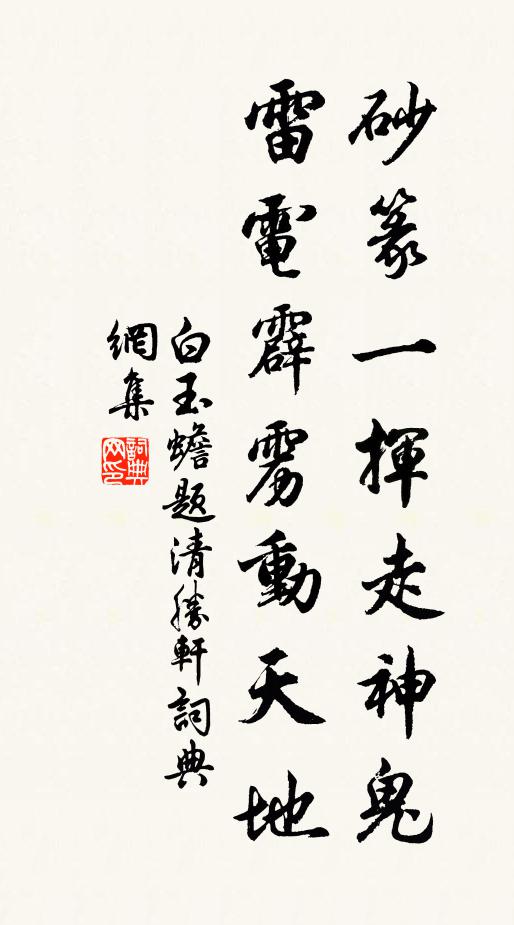 砂篆一揮走神鬼
雷電霹雳動天地
白玉蟾题清勝軒詞典
網集
詞典
网印